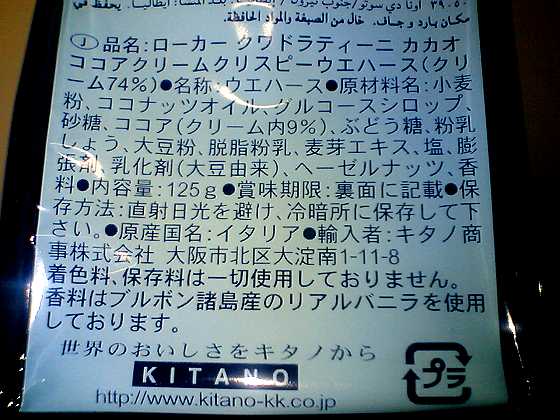 ٣٩٠٥٠ اونا دي سوتو / جنوب تيرول / إيطاليا. يحفظ في
مكان بارد وجاف. خال من الصبغة والمواد الحافظة.
Ⓙ品名:ローカー クワドラティーニ カカオ
ココアクリームクリスピーウエハース(クリ
ーム74%)●名称:ウエハース●原材料名:小麦
粉、ココナッツオイル、グルコースシロップ、
砂糖、ココア(クリーム内9%)、ぶどう糖、粉乳
しょう、大豆粉、脱脂粉乳、麦芽エキス、塩、膨
張剤、乳化剤(大豆由来)、ヘーゼルナッツ、香
料●内容量:125g●賞味期限:裏面に記載●保
存方法:直射日光を避け、冷暗所に保存して下
さい。●原産国名:イタリア●輸入者:キタノ商
事株式会社 大阪市北区大淀南1-11-8
着色料、保存料は一切使用しておりません。
香料はブルボン諸島産のリアルバニラを使用
しております。
世界のおいしさをキタノから
KITANO
http://www.kitano-kk.co.jp
プラ